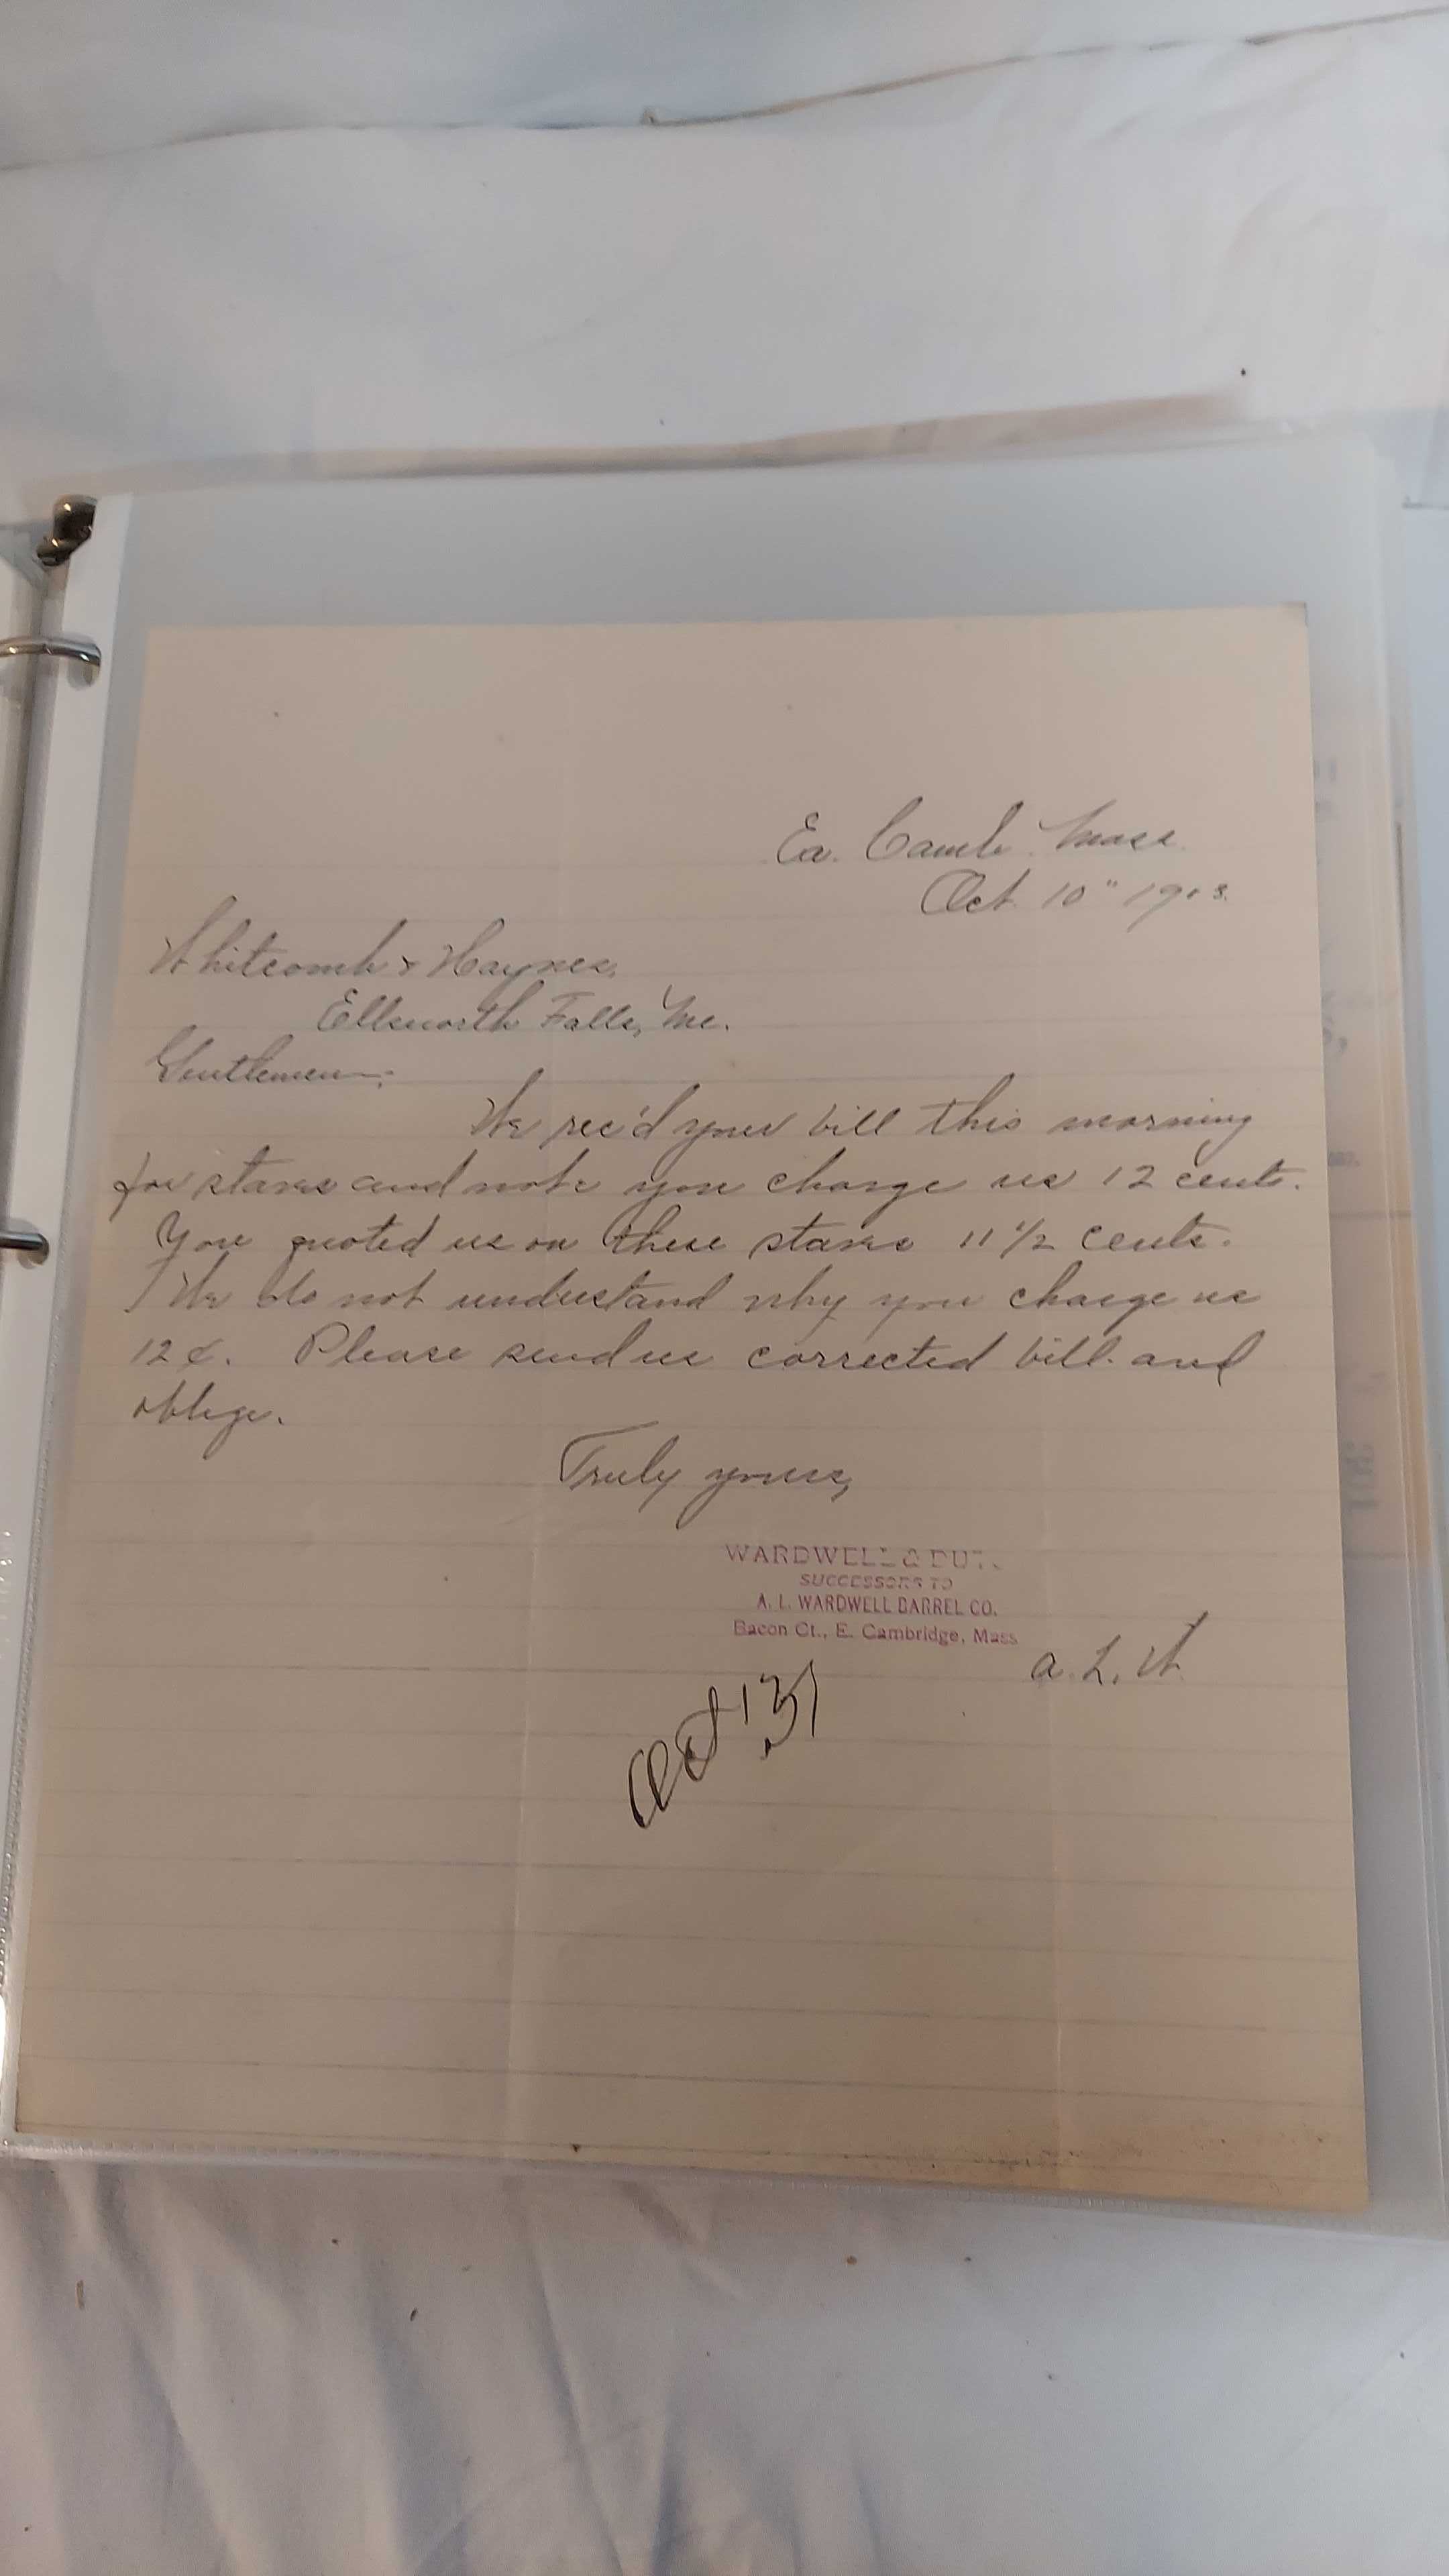 Ea. Camb. Mass.
Oct. 10" 1903.
Whitcomb & Haynes,
Ellsworth Falls, Me.
Gentlemen:
We rec'd your bill this morning
for staves and note you charge us 12 cents.
You quoted us on these staves 11 1/2 cents.
We do not understand why you charge us
12¢. Please send us corrected bill. and
oblige.
Truly yours,
WARDWELL &
SUCCESSORS TO
A. L. WARDWELL BARREL CO.
Bacon Ct., E. Cambridge, Mass
A. L. W.
Oct 13/